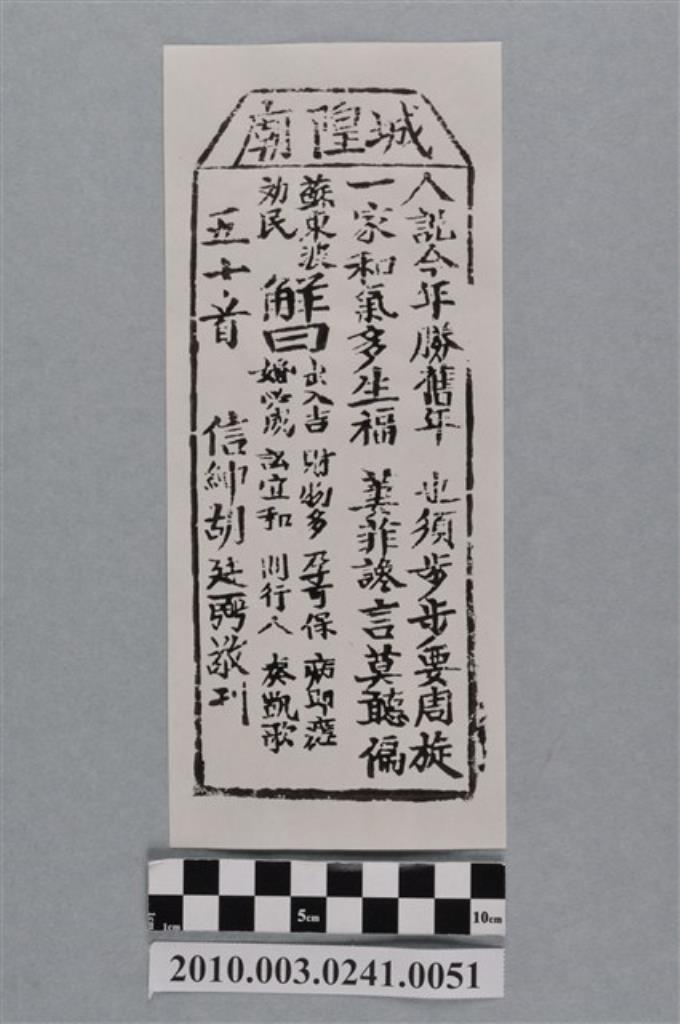 城隍廟
人説今年勝舊年 也須步步要周旋
一家和氣多生福 萋菲讒言莫聽偏
蘇東坡
効民
解曰
出入吉 財物多 孕可保 病即瘥
婚必成 訟宜和 問行人 奏凱歌
五十首 信紳胡廷弼敬刊
5cm
10cm
1cm
2010.003.0241.0051